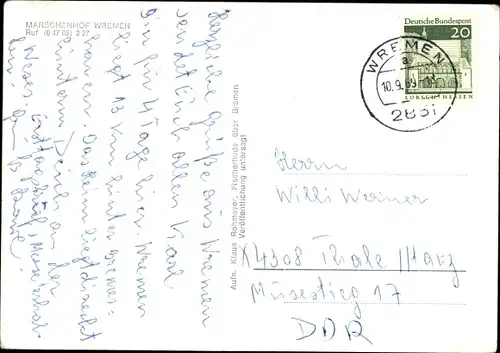 MARSCHENHOF WREMEN
Ruf (0 47 05) 2 27
Herzliche Grüße aus Wremen
sendet Euch allen Karl
Bin für 4 Tage hier. Wremen
liegt 13 km hinter Bremer-
haven. Das Heim liegt direkt
hinterm Deich an der
Weser
Aufn. Klaus Rohmeyer, Fischerhude über Bremen
Veröffentlichung untersagt
Deutsche Bundespost
20
LORSCH/HESSEN
WREMEN
a
10.9.69
2851
Herrn
Willi Werner
X4308 Thale/Harz
Müsestieg 17
DDR